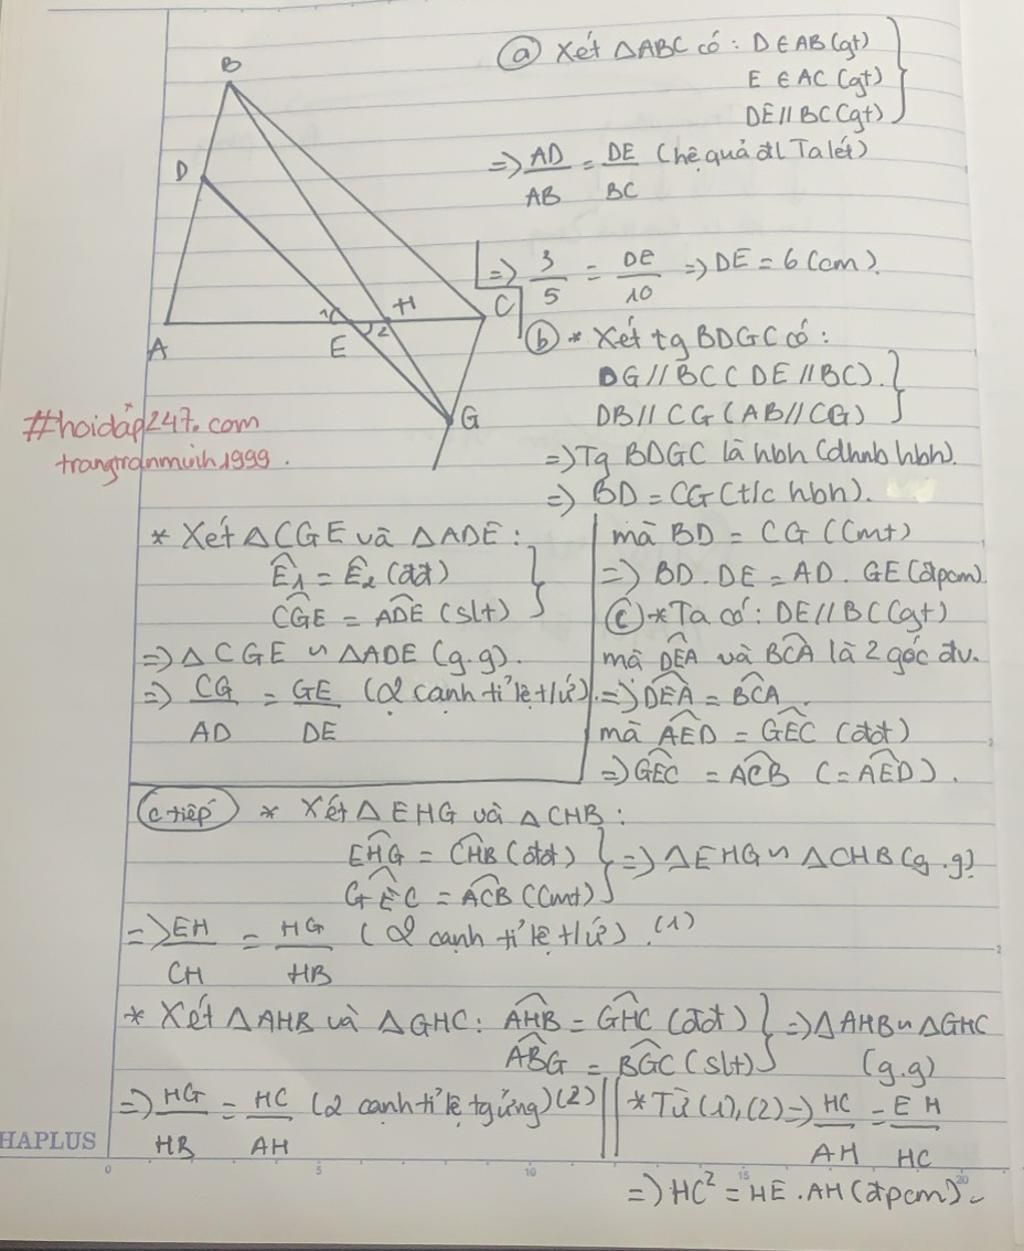 B
D
A
E
1
2
H
C
G
ⓐ Xét △ABC có: D ∈ AB (gt)
E ∈ AC (gt)
DE // BC (gt)
=> AD/AB = DE/BC (hệ quả đl Talét)
=> 3/5 = DE/10 => DE = 6 (cm).
ⓑ * Xét tg BDGC có:
DG // BC ( DE // BC).
DB // CG ( AB // CG)
=> Tg BDGC là hbh (dhnb hbh).
=> BD = CG (t/c hbh).
#hoidap247.com
trangtranminh1999.
* Xét △CGE và △ADE:
Ê1 = Ê2 (đđ)
CGE = ADE (slt)
=> △CGE ∽ △ADE (g.g).
=> CG/AD = GE/DE (2 cạnh tỉ lệ t/ứ).
mà BD = CG (Cmt)
=> BD . DE = AD . GE (đpcm)
ⓒ * Ta có: DE // BC (gt)
mà DEA và BCA là 2 góc đv.
=> DEA = BCA
mà AED = GEC (đđ)
=> GEC = ACB (= AED).
c tiếp * Xét △EHG và △CHB:
EHG = CHB (đđ)
GEC = ACB (Cmt)
=> △EHG ∽ △CHB (g.g)
=> EH/CH = HG/HB (2 cạnh tỉ lệ t/ứ). (1)
* Xét △AHB và △GHC: AHB = GHC (đđ)
ABG = BGC (slt)
=> △AHB ∽ △GHC
(g.g)
=> HG/HB = HC/AH (2 cạnh tỉ lệ tg ứng) (2)
* Từ (1), (2) => HC/AH = EH/HC
=> HC² = HE . AH (đpcm).
HAPLUS
0 5 10 15 20